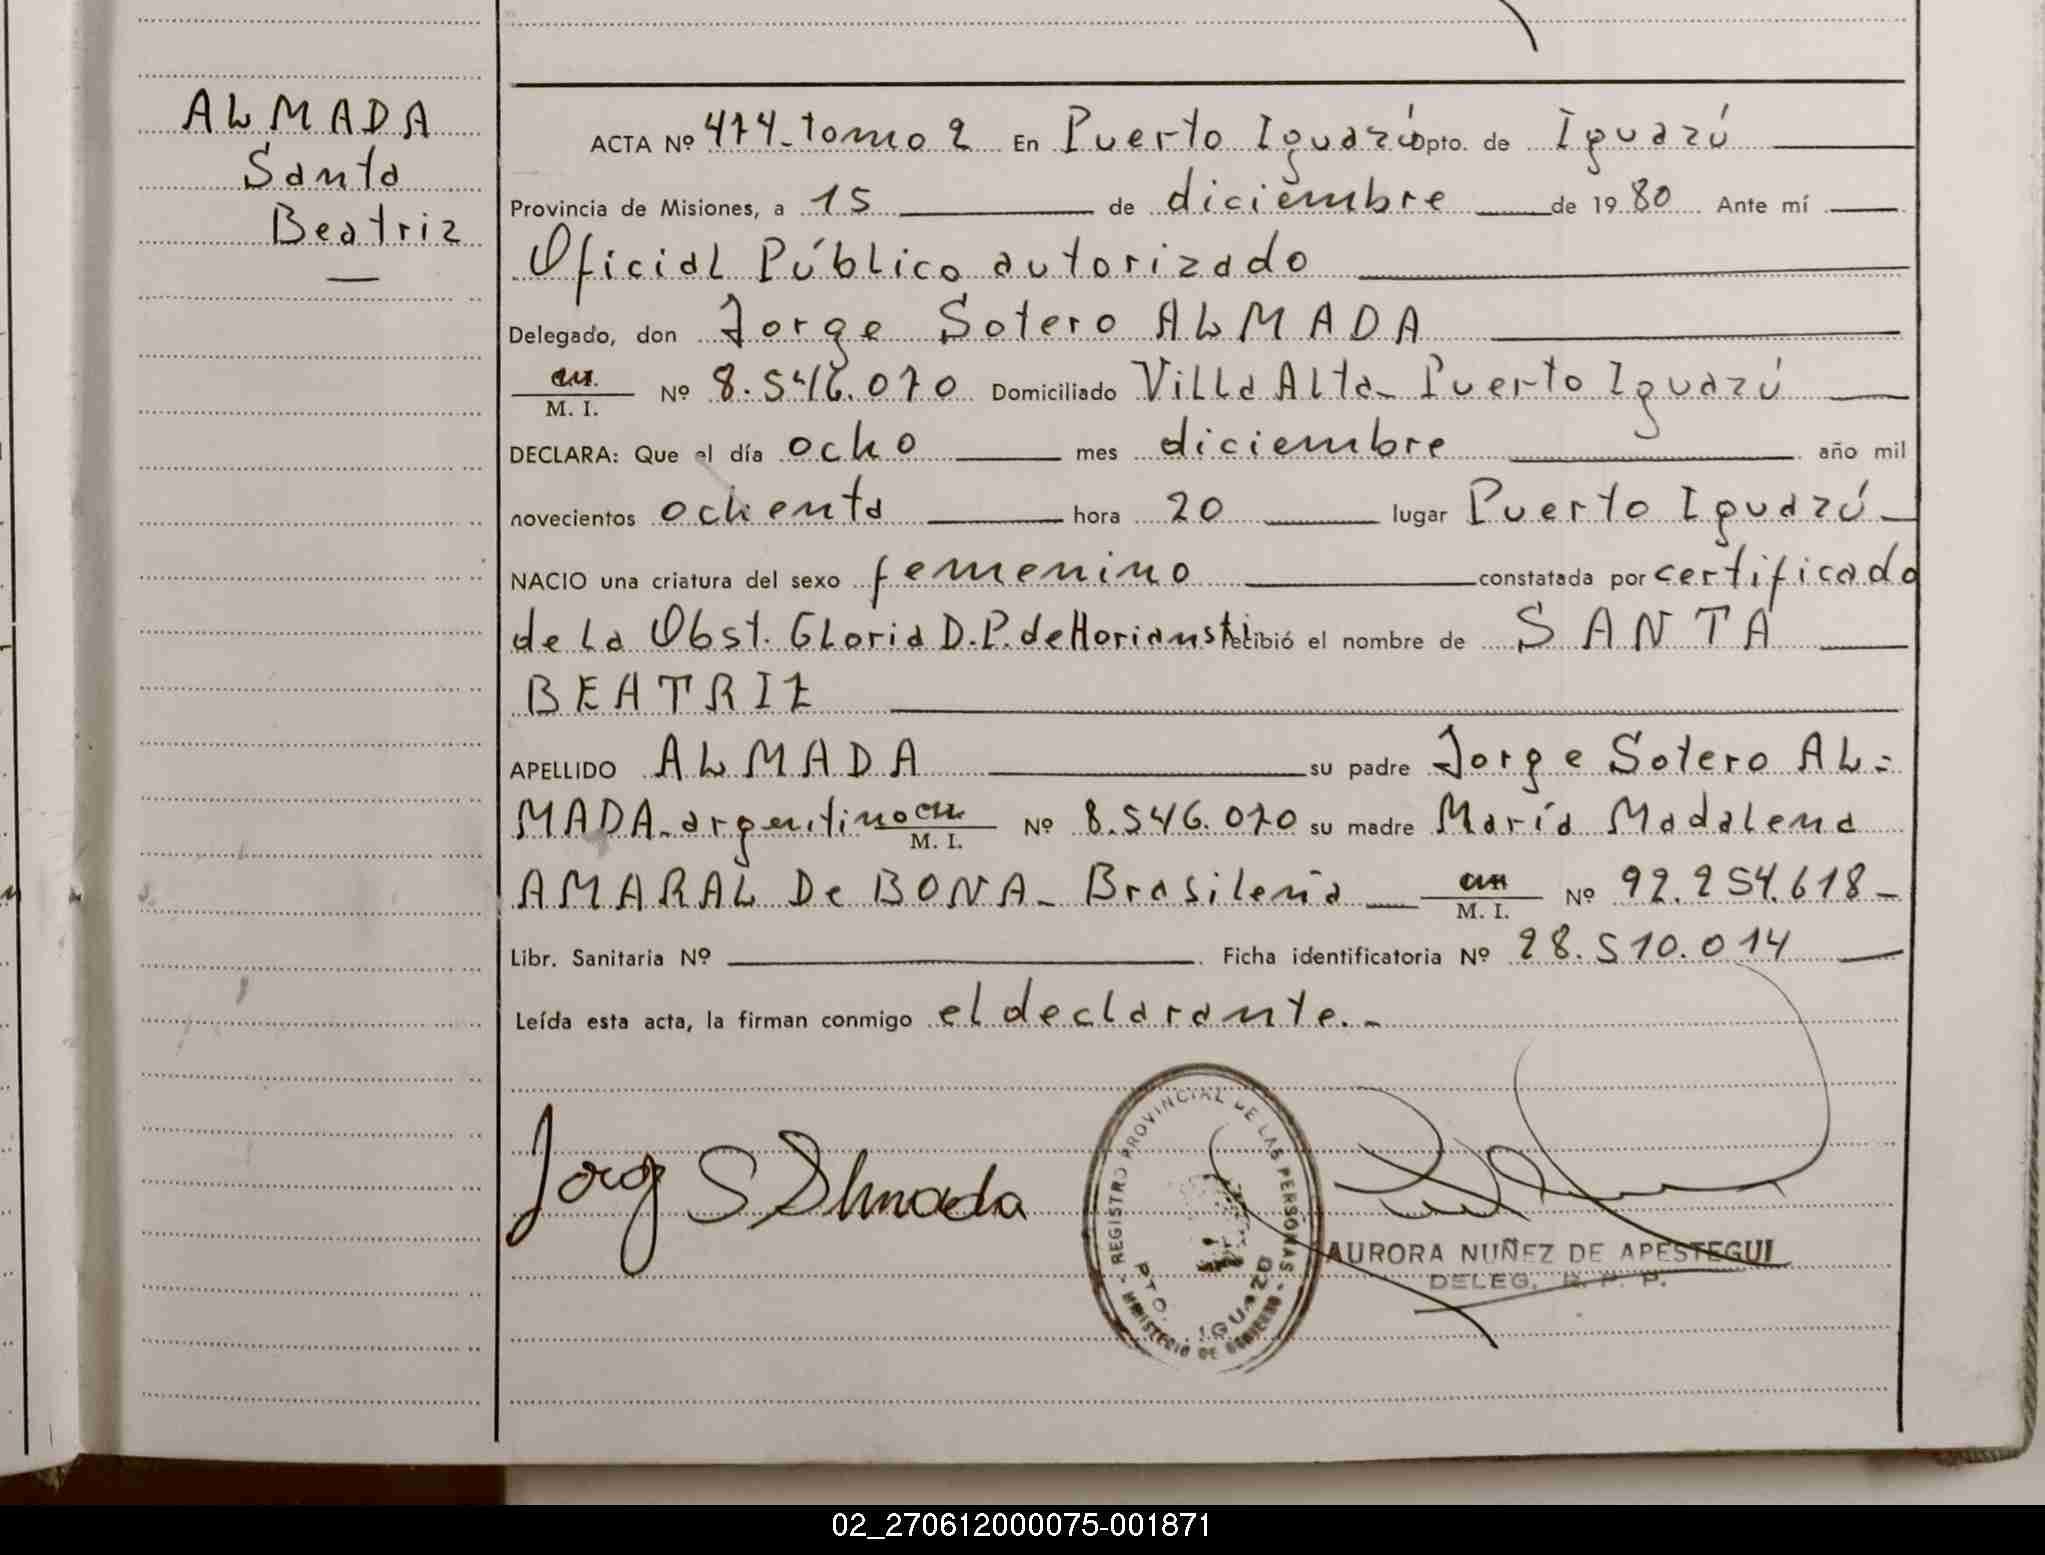 ALMADA
Santa
Beatriz
ACTA Nº 474-tomo 2 En Puerto Iguazú Dpto. de Iguazú
Provincia de Misiones, a 15 de diciembre de 1980 Ante mí
Oficial Público autorizado
Delegado, don Jorge Sotero ALMADA
M. I. Nº 8.546.070 Domiciliado Villa Alta - Puerto Iguazú
DECLARA: Que el día ocho mes diciembre año mil
novecientos ochenta hora 20 lugar Puerto Iguazú
NACIO una criatura del sexo femenino constatada por certificado
de la Obst. Gloria D. P. de recibió el nombre de SANTA
BEATRIZ
APELLIDO ALMADA su padre Jorge Sotero AL=
MADA - argentino M. I. Nº 8.546.070 su madre María Madalena
AMARAL De BONA - Brasileña M. I. Nº 92.254.618 -
Libr. Sanitaria Nº Ficha identificatoria Nº 28.510.014
Leída esta acta, la firman conmigo el declarante. -
Jorg S Almada
REGISTRO PROVINCIAL DE LAS PERSONAS
PTO. IGUAZU
MINISTERIO DE GOBIERNO
AURORA NUÑEZ DE APESTEGUI
DELEG. R. P. P.
02_270612000075-001871